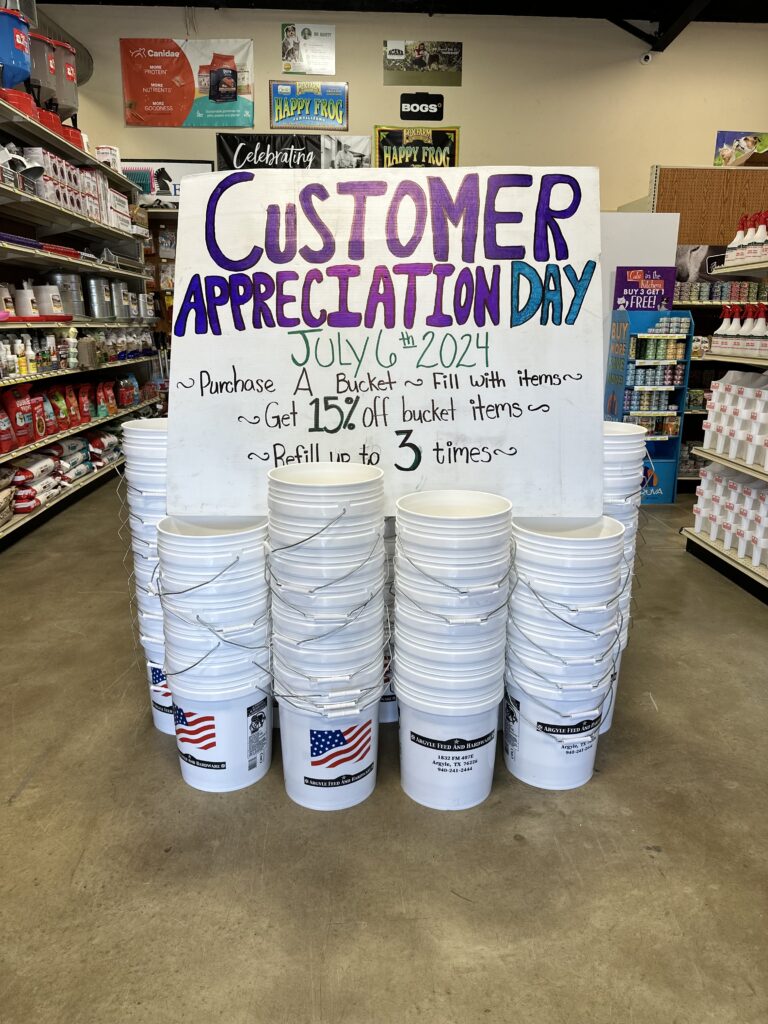 Canidae
MORE
PROTEIN
MORE
NUTRIENTS
MORE
GOODNESS
HAPPY FROG
BOGS
Celebrating
FOXFARM
HAPPY FROG
CUSTOMER
APPRECIATION DAY
JULY 6th 2024
~ Purchase A Bucket ~ Fill with items ~
~ Get 15% off bucket items ~
~ Refill up to 3 times ~
Cats in the
Kitchen
BUY 3 GET 1
FREE!
ARGYLE FEED AND HARDWARE
ARGYLE FEED AND HARDWARE
ARGYLE FEED AND HARDWARE
1832 FM 407E
Argyle, TX 76226
940-241-2444
ARGYLE FEED AND HARDWARE